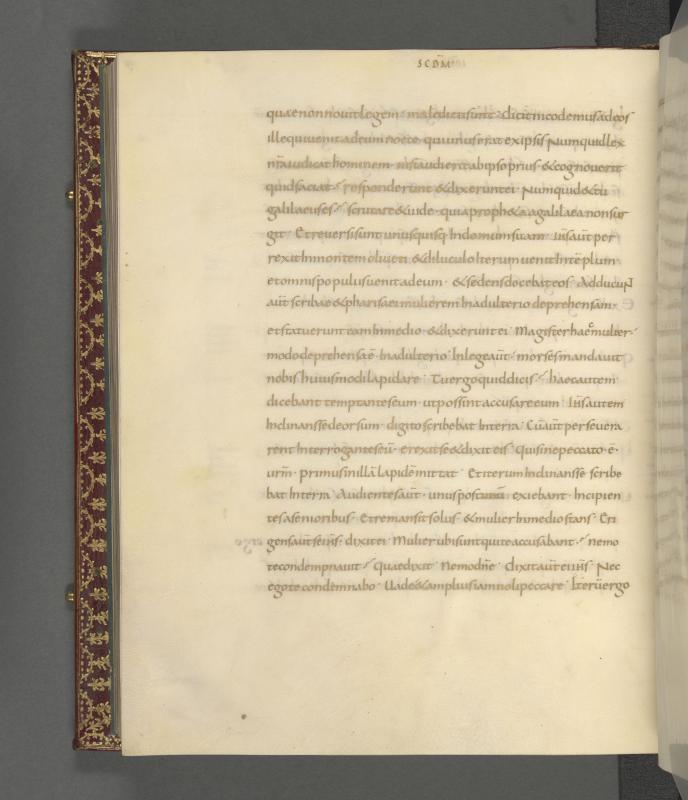 SCDM
quae non novit legem · maledicti sunt · dicit nicodemus ad eos
ille qui venit ad eum nocte · qui unus erat ex ipsis Numquid lex
nr̄a iudicat hominem · nisi audierit ab ipso prius · & cognoverit
quid faciat · responderunt & dixerunt ei · Numquid & tu
galilaeus es · scrutare & uide · quia proph&a a galilaea non sur
git · Et reversi sunt unusquisq; In domum suam · Ih̄s aut̄ per
rexit In montem oliueti · & diluculo Iterum venit In tēplum
et omnis populus uenit ad eum · & sedens docebat eos · AdducuN
aut̄ scribae & pharisaei mulierem In adulterio deprehensam ·
et statuerunt eam In medio · & dixerunt ei · Magister haec mulier ·
modo deprehensa ē · In adulterio · In lege aut̄ · moyses mandavit
nobis huiusmodi lapidare · Tu ergo quid dicis · haec autem
dicebant temptantes eum · ut possint accusare eum · Ih̄s autem
Inclinans se deorsum · digito scribebat In terra · Cū aut̄ persevera
rent Interrogantes eū · erexit se & dixit eis · qui sine peccato · ē ·
ur̄m · primus in illā lapidē mittat · Et iterum Inclinans se · scribe
bat In terra · Audientes aut̄ · unus post unū exiebant · Incipien
tes a senioribus · Et remansit solus · & mulier In medio stans · Eri
gens aut̄ se ih̄s · dixit ei · Mulier ubi sunt qui te accusabant · nemo
te condempnavit · quae dixit · Nemo dn̄e · dixit aut̄ ei ih̄s · Nec
ego te condemnabo · Uade & amplius iam noli peccare · Iterū ergo